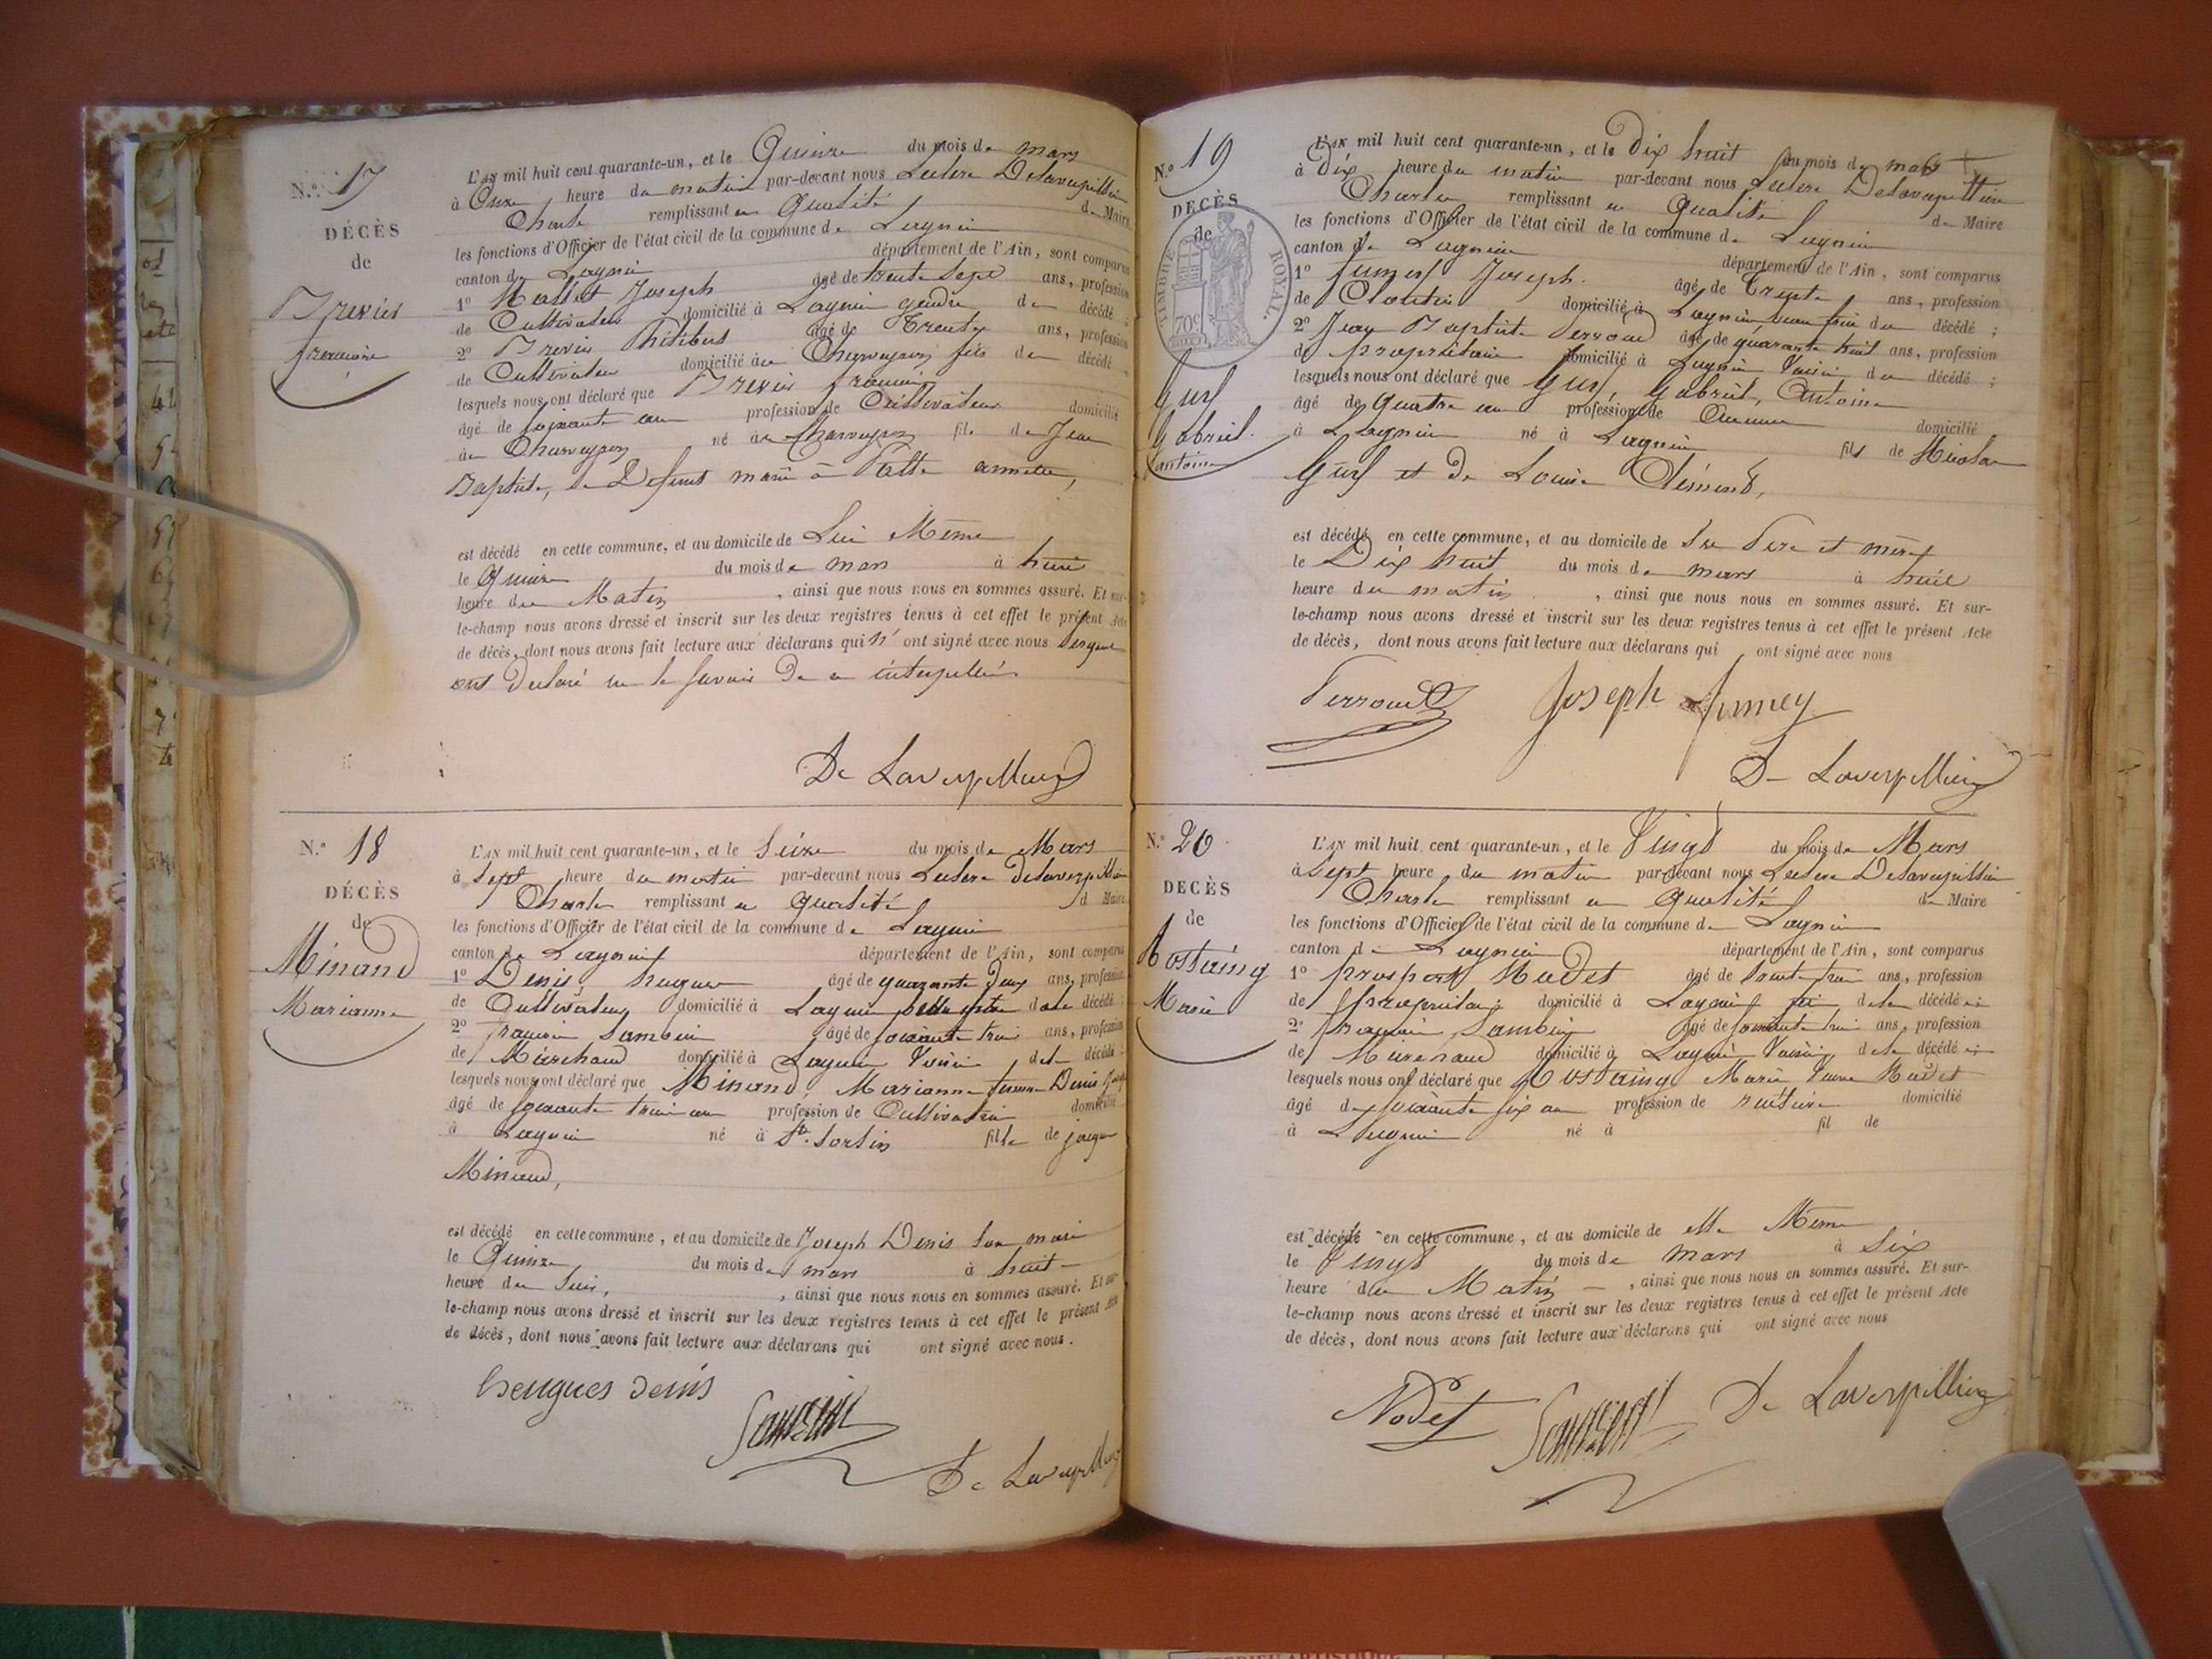 N.º 17
DÉCÈS
de
françois
L'AN mil huit cent quarante-un, et le Quinze du mois de mars
à Onze heure du matin par-devant nous Leclerc Delaverpillière
Charle remplissant en Qualité de Maire
les fonctions d'Officier de l'état civil de la commune de Lagnieu
canton de Lagnieu département de l'Ain, sont comparus
1º Joseph âgé de trente Sept ans, profession
de Cultivateur domicilié à Lagnieu gendre du décédé ;
2º âgé de Trente ans, profession
de Cultivateur domicilié au Charveyron fils du décédé
lesquels nous ont déclaré que françois
âgé de soixante ans profession de Cultivateur domicilié
au Charveyron né au Charveyron fils de Jean
Baptiste, le Défunt marié à
est décédé en cette commune, et au domicile de Lui Même
le Quinze du mois de mars à huit
heure du Matin, ainsi que nous nous en sommes assuré. Et sur-
le-champ nous avons dressé et inscrit sur les deux registres tenus à cet effet le présent Acte
de décès, dont nous avons fait lecture aux déclarans qui n' ont signé avec nous
ont déclaré ne le savoir de ce interpellés
De Laverpillière
N.º 18
DÉCÈS
de
Minand
Marianne
L'AN mil huit cent quarante-un, et le Seize du mois de Mars
à Sept heure du matin par-devant nous Leclerc Delaverpillière
Charle remplissant en qualité d Maire
les fonctions d'Officier de l'état civil de la commune de Lagnieu
canton de Lagnieu département de l'Ain, sont comparus
1º Denis hugues âgé de quarante deux ans, profession
de Cultivateur domicilié à Lagnieu de la décédé
2º françois Sambin âgé de soixante trois ans, profession
de Marchand domicilié à Lagnieu Voisin de la décédé
lesquels nous ont déclaré que Minand, Marianne femme Denis
âgé de soixante trois ans profession de Cultivatrice domicilié
à Lagnieu né à St. Sorlin fille de
Minand,
est décédé en cette commune, et au domicile de Joseph Denis son mari
le Quinze du mois de mars à huit
heure du Soir, , ainsi que nous nous en sommes assuré. Et sur-
le-champ nous avons dressé et inscrit sur les deux registres tenus à cet effet le présent Acte
de décès, dont nous avons fait lecture aux déclarans qui ont signé avec nous.
heugues denis
De Laverpillière
N.º 19
DECÈS
de
TIMBRE ROYAL.
70c
Gabriel
antoine
L'AN mil huit cent quarante-un, et le Dix huit du mois de mars
à Dix heure du matin par-devant nous Leclerc Delaverpillière
Charles remplissant en Qualité de Maire
les fonctions d'Officier de l'état civil de la commune de Lagnieu
canton de Lagnieu département de l'Ain, sont comparus
1º Joseph. âgé de Trente ans, profession
de Cloutier domicilié à Lagnieu beau frère du décédé ;
2º Jean Baptiste Perroud âgé de quarante huit ans, profession
de propriétaire domicilié à Lagnieu Voisin du décédé ;
lesquels nous ont déclaré que Gabriel, Antoine
âgé de Quatre ans profession de Aucune domicilié
à Lagnieu né à Lagnieu fils de Nicolas
et de Louise Clément,
est décédé en cette commune, et au domicile de Ses Père et mère
le Dix huit du mois de mars à huit
heure du matin , ainsi que nous nous en sommes assuré. Et sur-
le-champ nous avons dressé et inscrit sur les deux registres tenus à cet effet le présent Acte
de décès, dont nous avons fait lecture aux déclarans qui ont signé avec nous
Perroud Joseph
De Laverpillière
N.º 20
DECÈS
de
Rostaing
Marie
L'AN mil huit cent quarante-un, et le Vingt du mois de Mars
à Sept heure du matin par-devant nous Leclerc Delaverpillière
Charle remplissant en Qualité de Maire
les fonctions d'Officier de l'état civil de la commune de Lagnieu
canton de Lagnieu département de l'Ain, sont comparus
1º prosper Nodet âgé de trente trois ans, profession
de propriétaire domicilié à Lagnieu de la décédé
2º françois Sambin âgé de soixante trois ans, profession
de Marchand domicilié à Lagnieu Voisin de la décédé
lesquels nous ont déclaré que Rostaing Marie Veuve Nodet
âgé de soixante six ans profession de rentière domicilié
à Lagnieu né à fil de
est décédé en cette commune, et au domicile de elle Même
le Vingt du mois de mars à Six
heure du Matin , ainsi que nous nous en sommes assuré. Et sur-
le-champ nous avons dressé et inscrit sur les deux registres tenus à cet effet le présent Acte
de décès, dont nous avons fait lecture aux déclarans qui ont signé avec nous
Nodet De Laverpillière